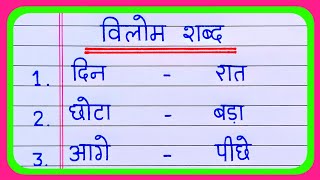 विलोम शब्द
1. दिन - रात
2. छोटा - बड़ा
3. आगे - पीछे